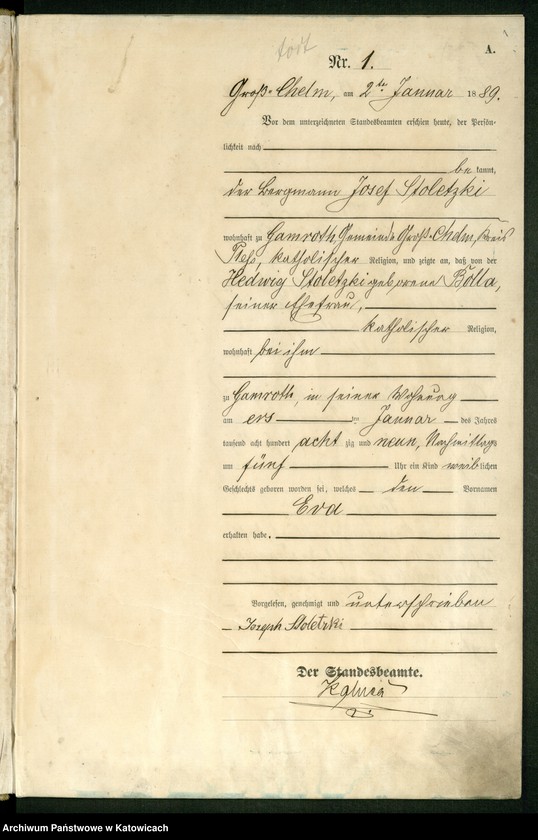 todt
A.
Nr. 1.
Groß-Chelm, am 2ten Januar 1889.
Vor dem unterzeichneten Standesbeamten erschien heute, der Persön-
lichkeit nach
be kannt,
der Bergmann Josef Stoletzki
wohnhaft zu Gamroth, Gemeinde Groß-Chelm, Kreis
Pleß, katholischer Religion, und zeigte an, daß von der
Hedwig Stoletzki geborene Bolla,
seiner Ehefrau,
katholischer Religion,
wohnhaft bei ihm
zu Gamroth, in seiner Wohnung
am ers ten Januar des Jahres
tausend acht hundert acht zig und neun, Nachmittags
um fünf Uhr ein Kind weib lichen
Geschlechts geboren worden sei, welches den Vornamen
Eva
erhalten habe.
Vorgelesen, genehmigt und unterschrieben
Jozeph Stoletzki
Der Standesbeamte.
Archiwum Państwowe w Katowicach